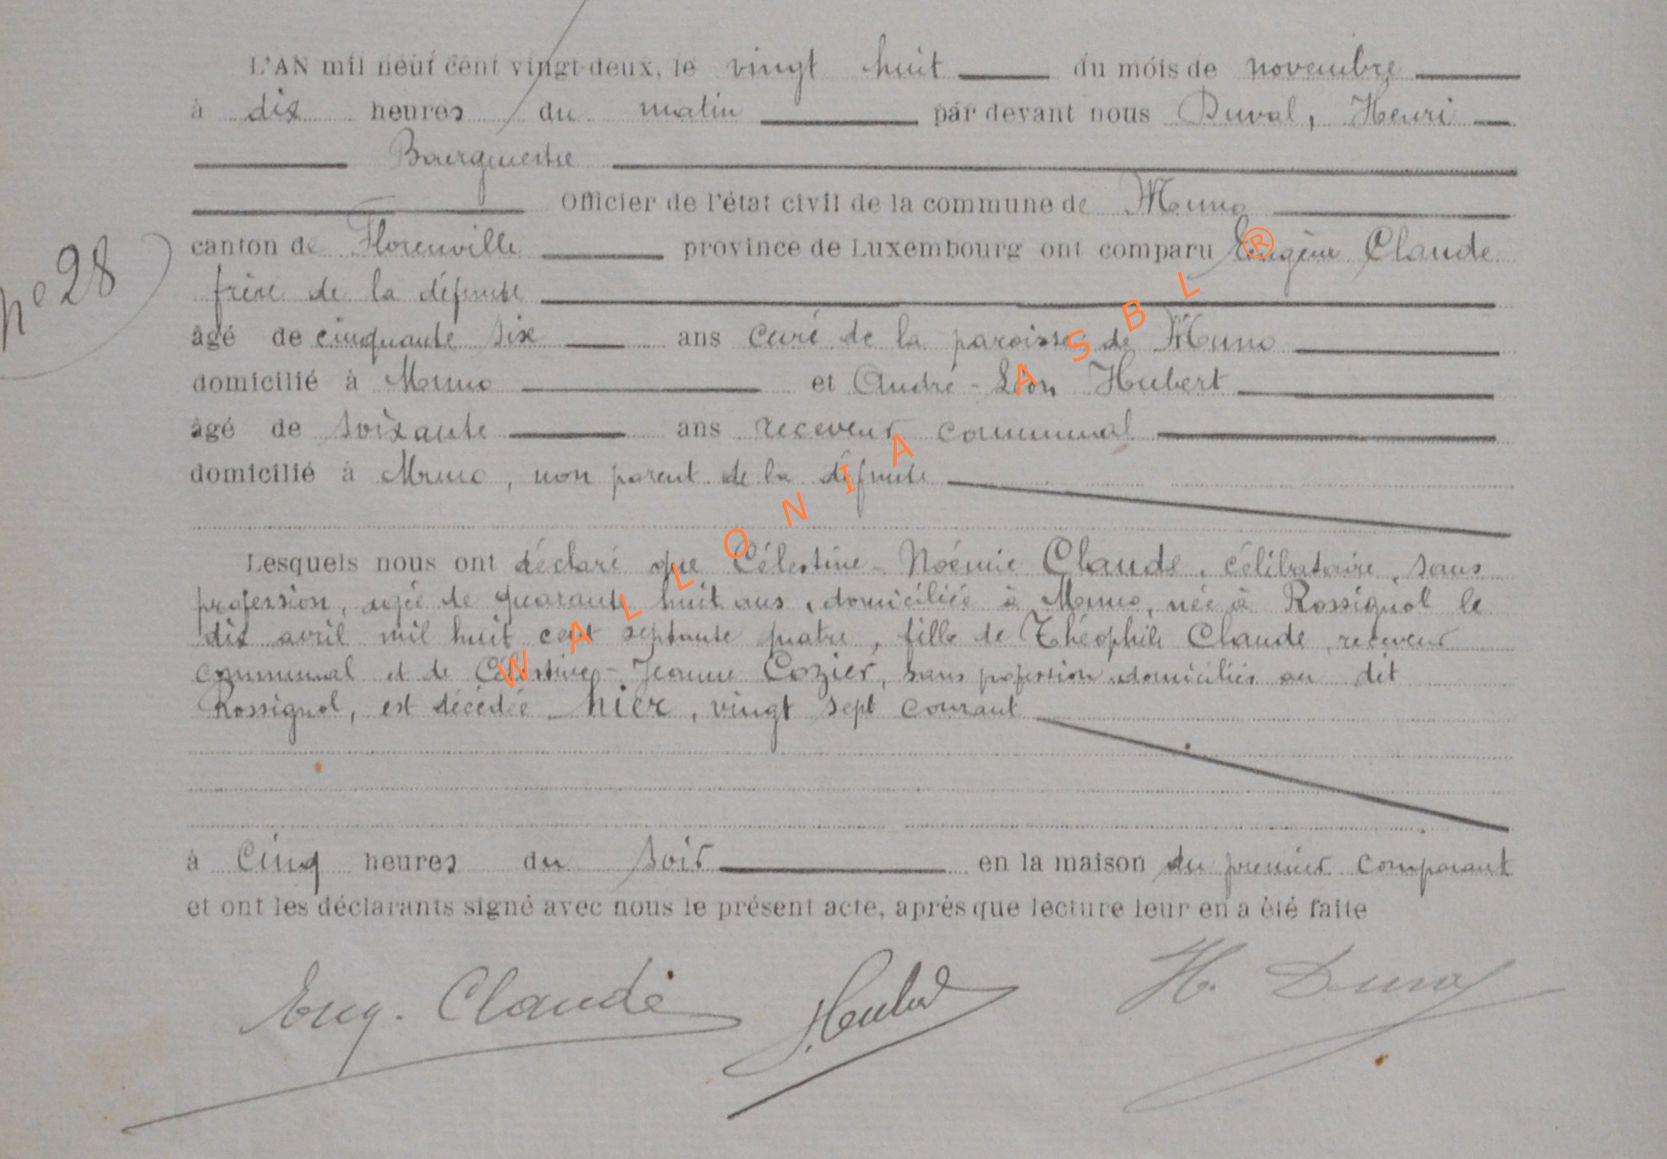 L'AN mil neuf cent vingt-deux, le vingt huit du mois de novembre
à dix heures du matin par devant nous Duval, Henri
Bourgmestre
Officier de l'état civil de la commune de Muno
canton de Florenville province de Luxembourg ont comparu Eugène Claude
n° 28
frère de la défunte
âgé de cinquante six ans curé de la paroisse de Muno
domicilié à Muno et André-Léon Hubert
âgé de soixante ans receveur communal
domicilié à Muno, non parent de la défunte
Lesquels nous ont déclaré que Célestine-Noémie Claude, célibataire, sans
profession, agée de quarante huit ans, domiciliée à Muno, née à Rossignol le
dix avril mil huit cent septante quatre, fille de Théophile Claude, receveur
communal et de Célestine-Jeanne Cozier, sans profession domiciliés au dit
Rossignol, est décédée hier, vingt sept courant
à cinq heures du soir en la maison du premier comparant
et ont les déclarants signé avec nous le présent acte, après que lecture leur en a été faite
Eug. Claude Hubert H. Duval
WALLONIA ASBL ®